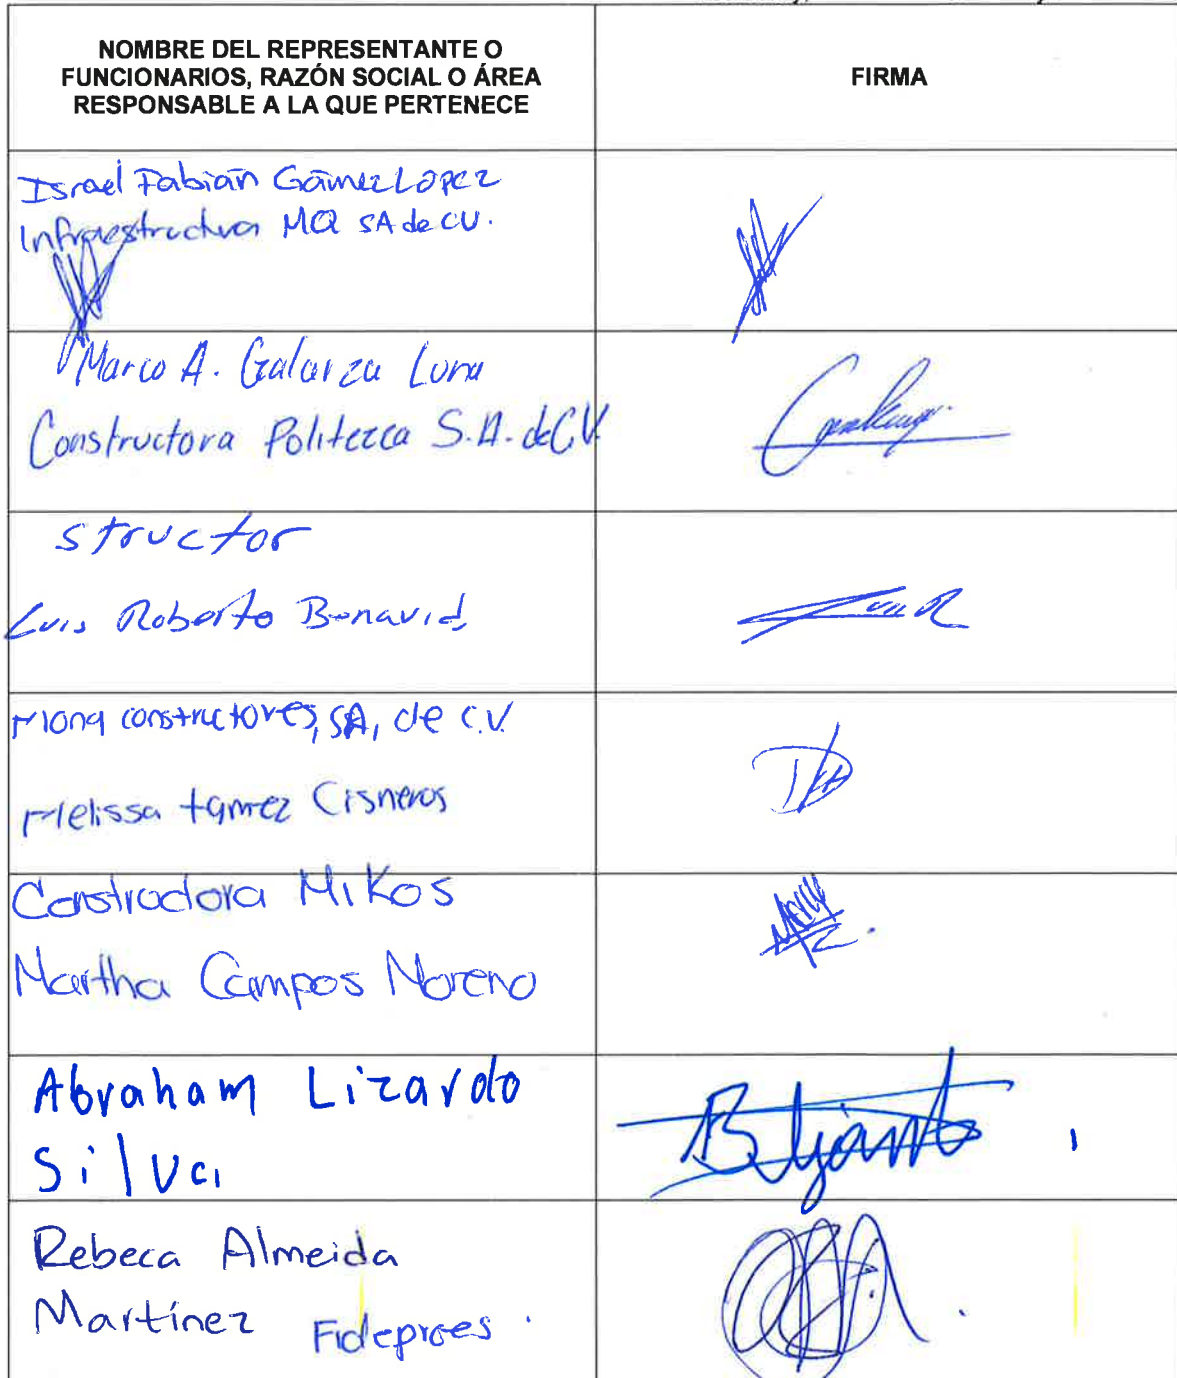 NOMBRE DEL REPRESENTANTE O
FUNCIONARIOS, RAZÓN SOCIAL O ÁREA
RESPONSABLE A LA QUE PERTENECE
FIRMA
Israel Fabián Gámez Lopez
Infraestructura MQ SA de CV.
Marco A. Galarza Luna
Constructora Politezca S.A. de C.V.
structor
Luis Roberto
Mong constructores, SA, de C.V.
Melissa tamez Cisneros
Constructora Mikos
Martha Campos Moreno
Abraham Lizardo
Silva
Rebeca Almeida
Martínez Fideproes.